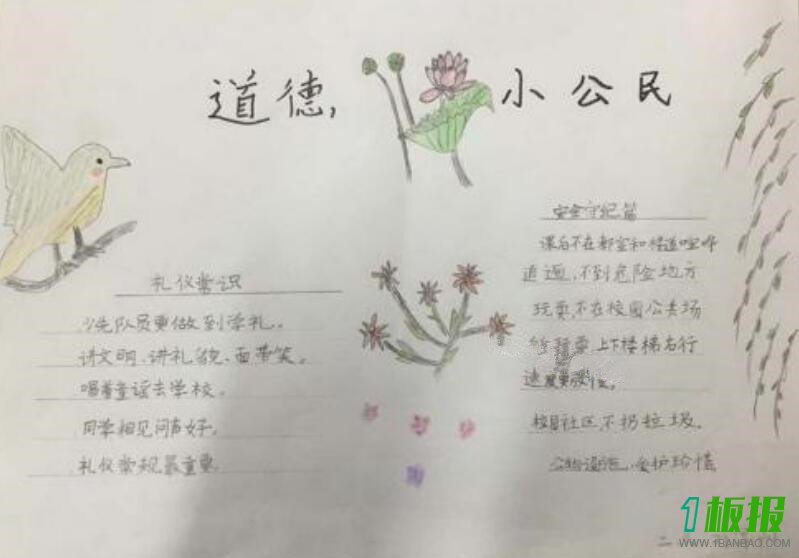 道德,小公民
礼仪常识
少先队员要做到学礼。
讲文明、讲礼貌、面带笑。
唱着童谣去学校。
同学相见问声好。
礼仪常规最重要
安全守纪篇
课后不在教室和楼道喧哗
追逐,不到危险地方
玩耍,不在校园公共场
上下楼梯右行
校园社区,不扔垃圾。
公物设施,爱护珍惜
二
1板报
WWW.1BANBAO.COM